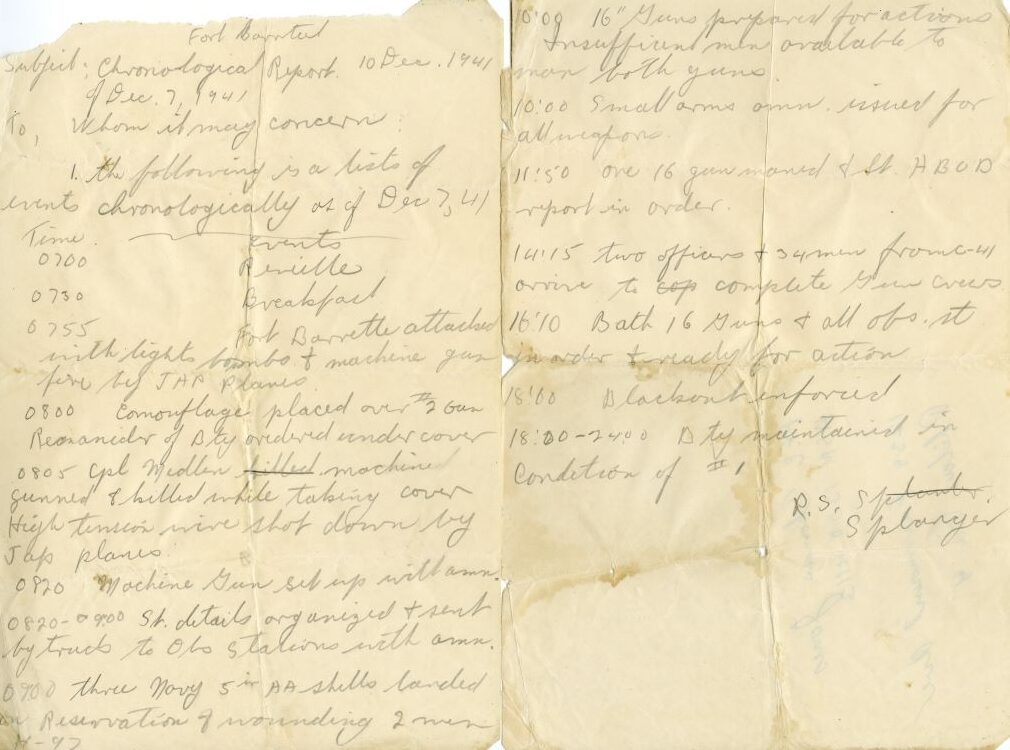 Fort Barrette
Subject: Chronological Report. 10 Dec. 1941
of Dec. 7, 1941
To, Whom it may concern:
1. the following is a lists of
events chronologically as of Dec 7, 41
Time. events
0700 Reville
0730 Breakfast
0755 Fort Barrette attacked
with lights bombs & machine gun
fire by JAP Planes.
0800 Comouflage placed over #2 Gun
Remaincder of Bty ordered under cover
0805 Cpl Medlen killed machined
gunned & killed while taking cover
High tension wire shot down by
Jap planes.
0820 Machine Gun set up with amn.
0820-0900 St. details organized & sent
by trucks to Obs Stations with amn.
0900 three Navy 5 in AA shells landed
on Reservation & wounding 2 men
H-97
10:00 16" Guns prepared for actions
Insufficent men available to
man both guns.
10:00 Small arms amn. issued for
all weapons.
11:50 one 16 gun maned & St. A B O D
report in order.
14:15 two officers & 34 men from C-41
arrive to cop complete Gun crews
16:10 Bath 16 Guns & all obs. st
in order & ready for action
18:00 Blackout enforced
18:00-24:00 Bty maintained in
Condition of #1
R. S. Splanler.
Splanger